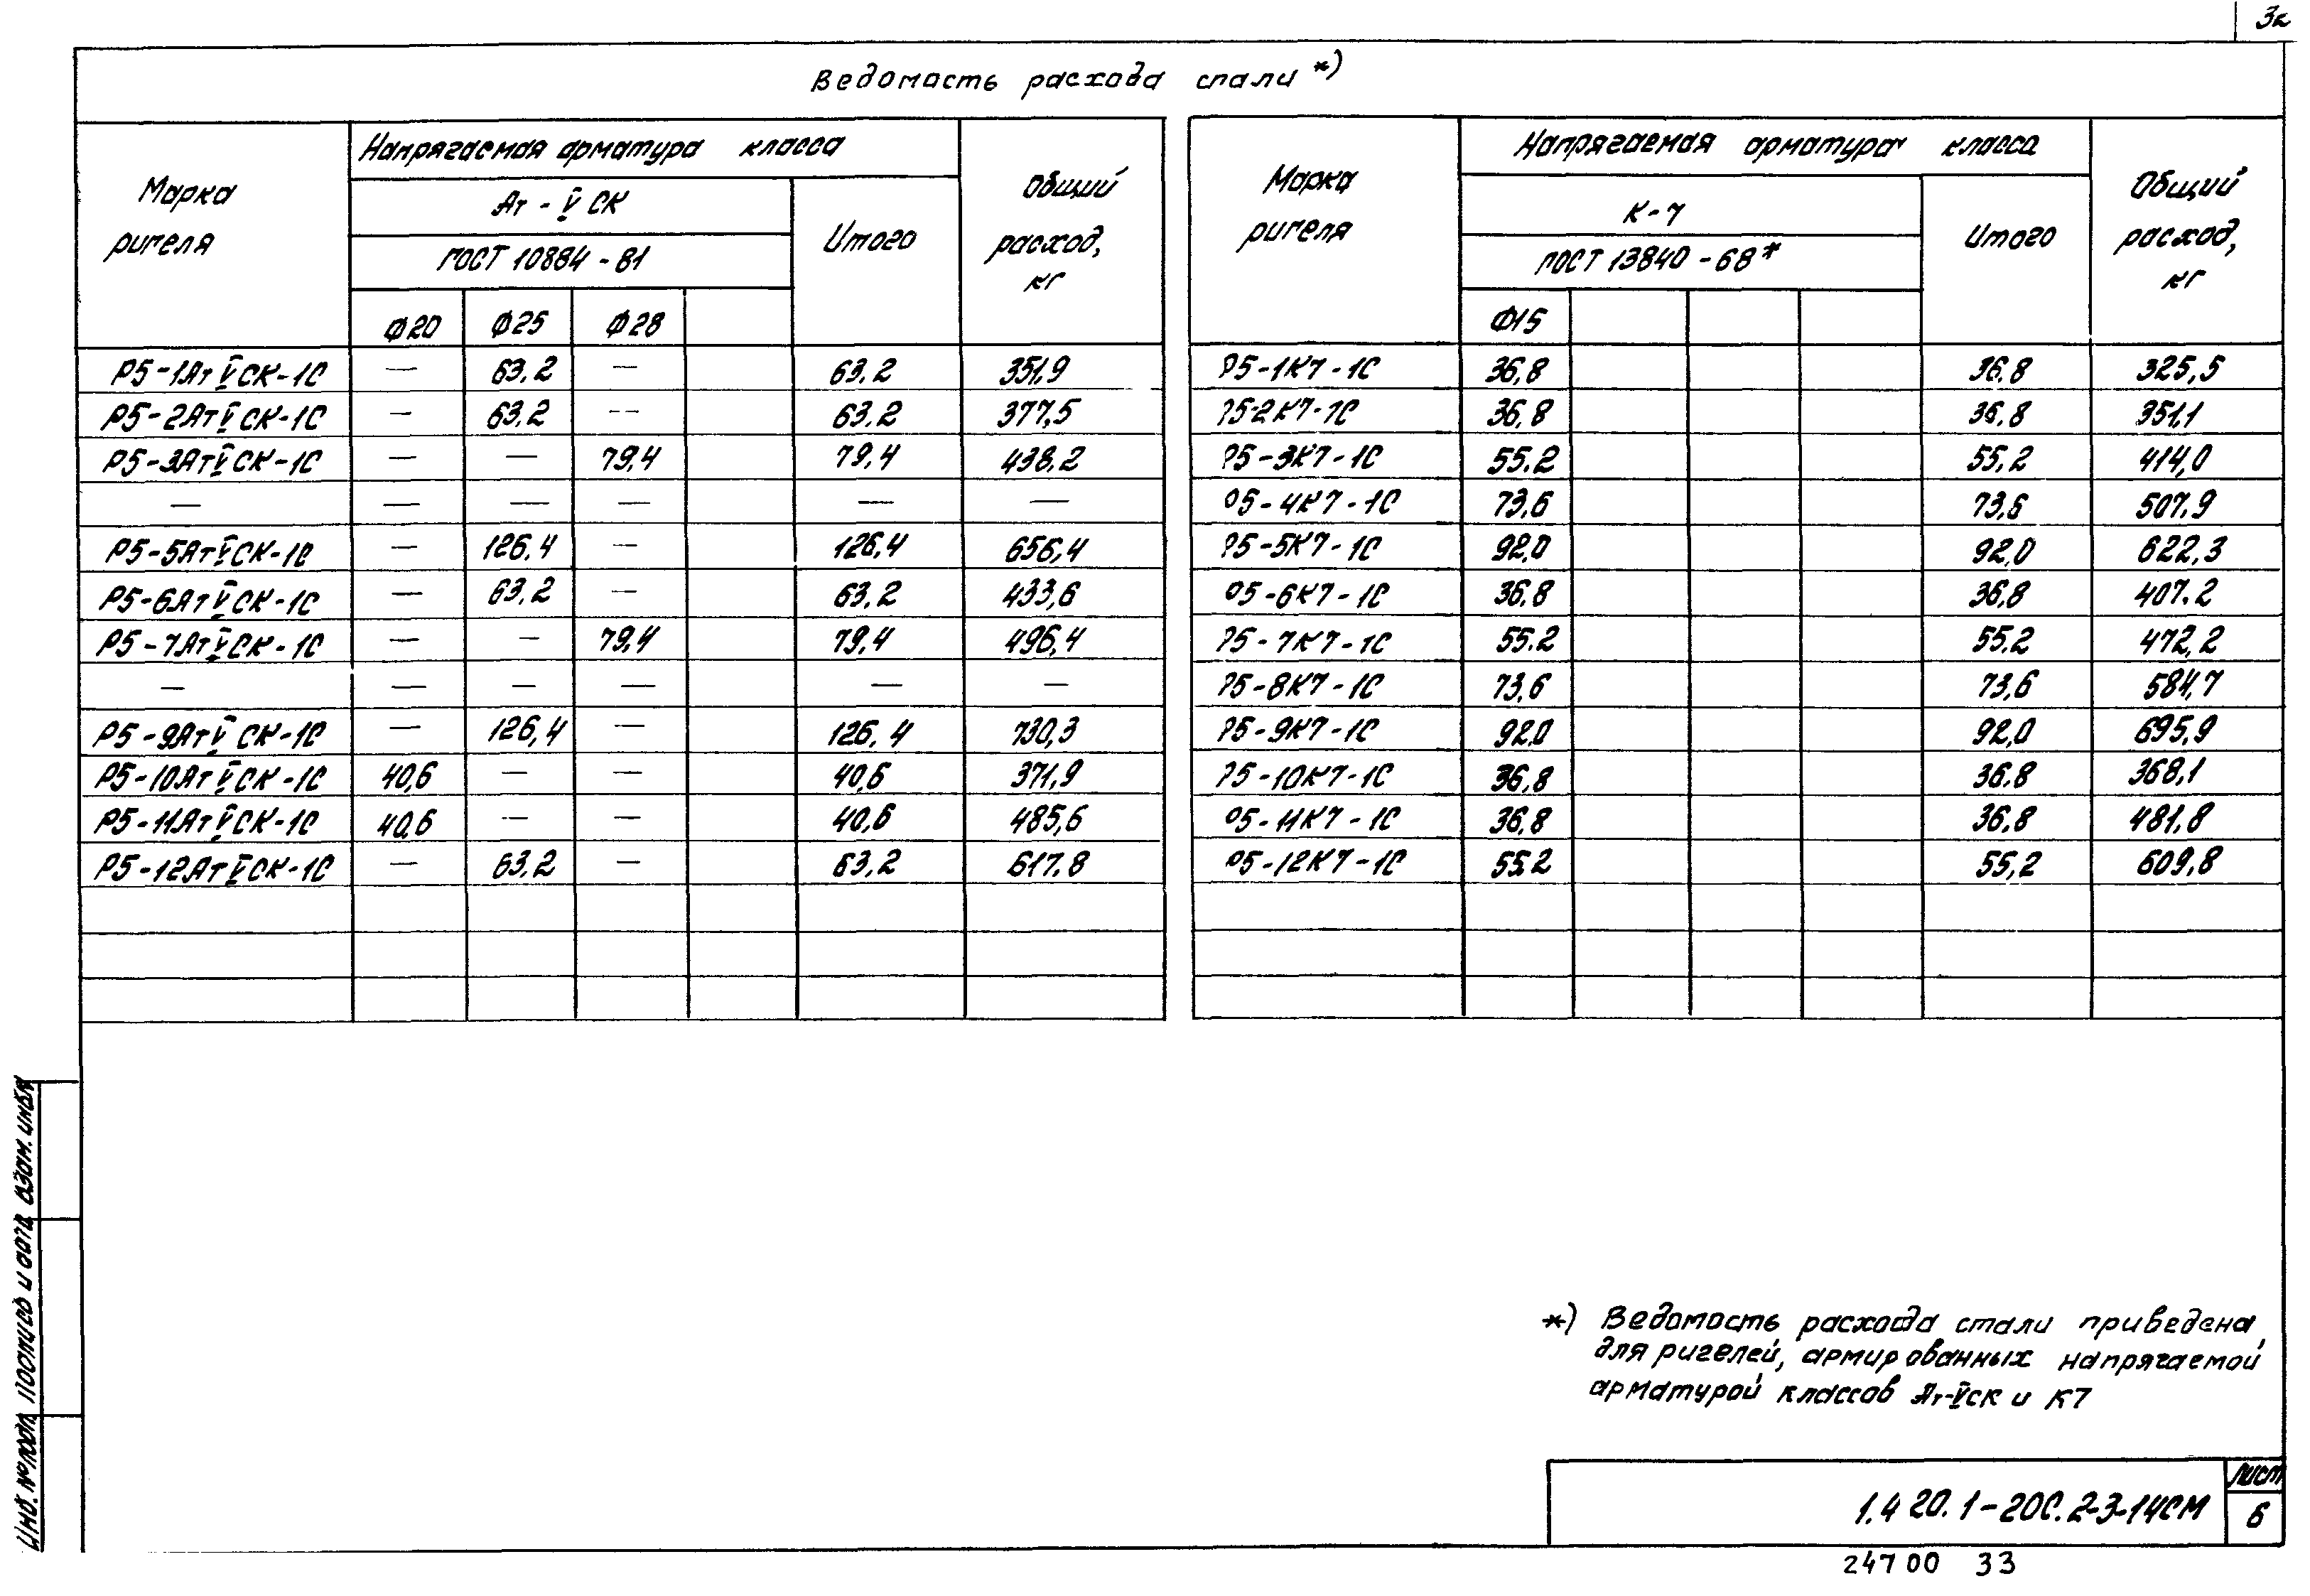 32
Ведомость расхода стали *)
Марка ригеля | Напрягаемая арматура класса | Общий расход, кг
Ат-V СК | Итого
ГОСТ 10884-81
Ф20 | Ф25 | Ф28
Р5-1АтVСК-1С | — | 63,2 | — | 63,2 | 351,9
Р5-2АтVСК-1С | — | 63,2 | — | 63,2 | 377,5
Р5-3АтVСК-1С | — | — | 79,4 | 79,4 | 438,2
— | — | — | — | — | —
Р5-5АтVСК-1С | — | 126,4 | — | 126,4 | 656,4
Р5-6АтVСК-1С | — | 63,2 | — | 63,2 | 433,6
Р5-7АтVСК-1С | — | — | 79,4 | 79,4 | 496,4
— | — | — | — | — | —
Р5-9АтVСК-1С | — | 126,4 | — | 126,4 | 730,3
Р5-10АтVСК-1С | 40,6 | — | — | 40,6 | 371,9
Р5-11АтVСК-1С | 40,6 | — | — | 40,6 | 485,6
Р5-12АтVСК-1С | — | 63,2 | — | 63,2 | 617,8
Марка ригеля | Напрягаемая арматура класса | Общий расход, кг
К-7 | Итого
ГОСТ 13840-68*
Ф15
Р5-1К7-1С | 36,8 | 36,8 | 325,5
Р5-2К7-1С | 36,8 | 36,8 | 351,1
Р5-3К7-1С | 55,2 | 55,2 | 414,0
Р5-4К7-1С | 73,6 | 73,6 | 507,9
Р5-5К7-1С | 92,0 | 92,0 | 622,3
Р5-6К7-1С | 36,8 | 36,8 | 407,2
Р5-7К7-1С | 55,2 | 55,2 | 472,2
Р5-8К7-1С | 73,6 | 73,6 | 584,7
Р5-9К7-1С | 92,0 | 92,0 | 695,9
Р5-10К7-1С | 36,8 | 36,8 | 368,1
Р5-11К7-1С | 36,8 | 36,8 | 481,8
Р5-12К7-1С | 55,2 | 55,2 | 609,8
*) Ведомость расхода стали приведена
для ригелей, армированных напрягаемой
арматурой классов Ат-VСК и К7
Инв. № подл. Подпись и дата Взам. инв.№
1.420.1-20С.2-3-14СМ
Лист
6
24700 33